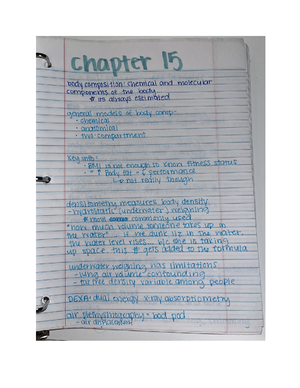 chapter 15
body composition: chemical and molecular
components of the body
# is always estimated
general models of body comp:
• chemical
• anatomical
• two compartment
Key info:
• BMI is not enough to know fitness status
• ↑ Body fat = ↓ performance
↳ not really though
densitometry measures body density
- hydrostatic (underwater) weighing
# most commonly used
"how much volume someone takes up in
the water" if we dunk liz in the water,
the water level rises b/c she is taking
up space. this # gets added to the formula
underwater weighing has limitations
- lung air volume confounding
- fat free density variable among people
DEXA: dual energy x-ray absorptiometry
air plethysmography = bod pod
- air displacement